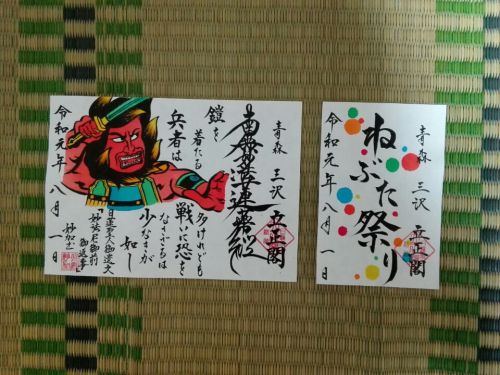 青森 三沢 立正閣
南無妙法蓮華経
鎧を
着たる
兵者は
多けれども
戦いに恐を
なさざるは
少なきが
如し
御遺文
御前
御返事」
令和元年八月一日
青森 三沢 立正閣
ねぶた祭り
令和元年八月一日